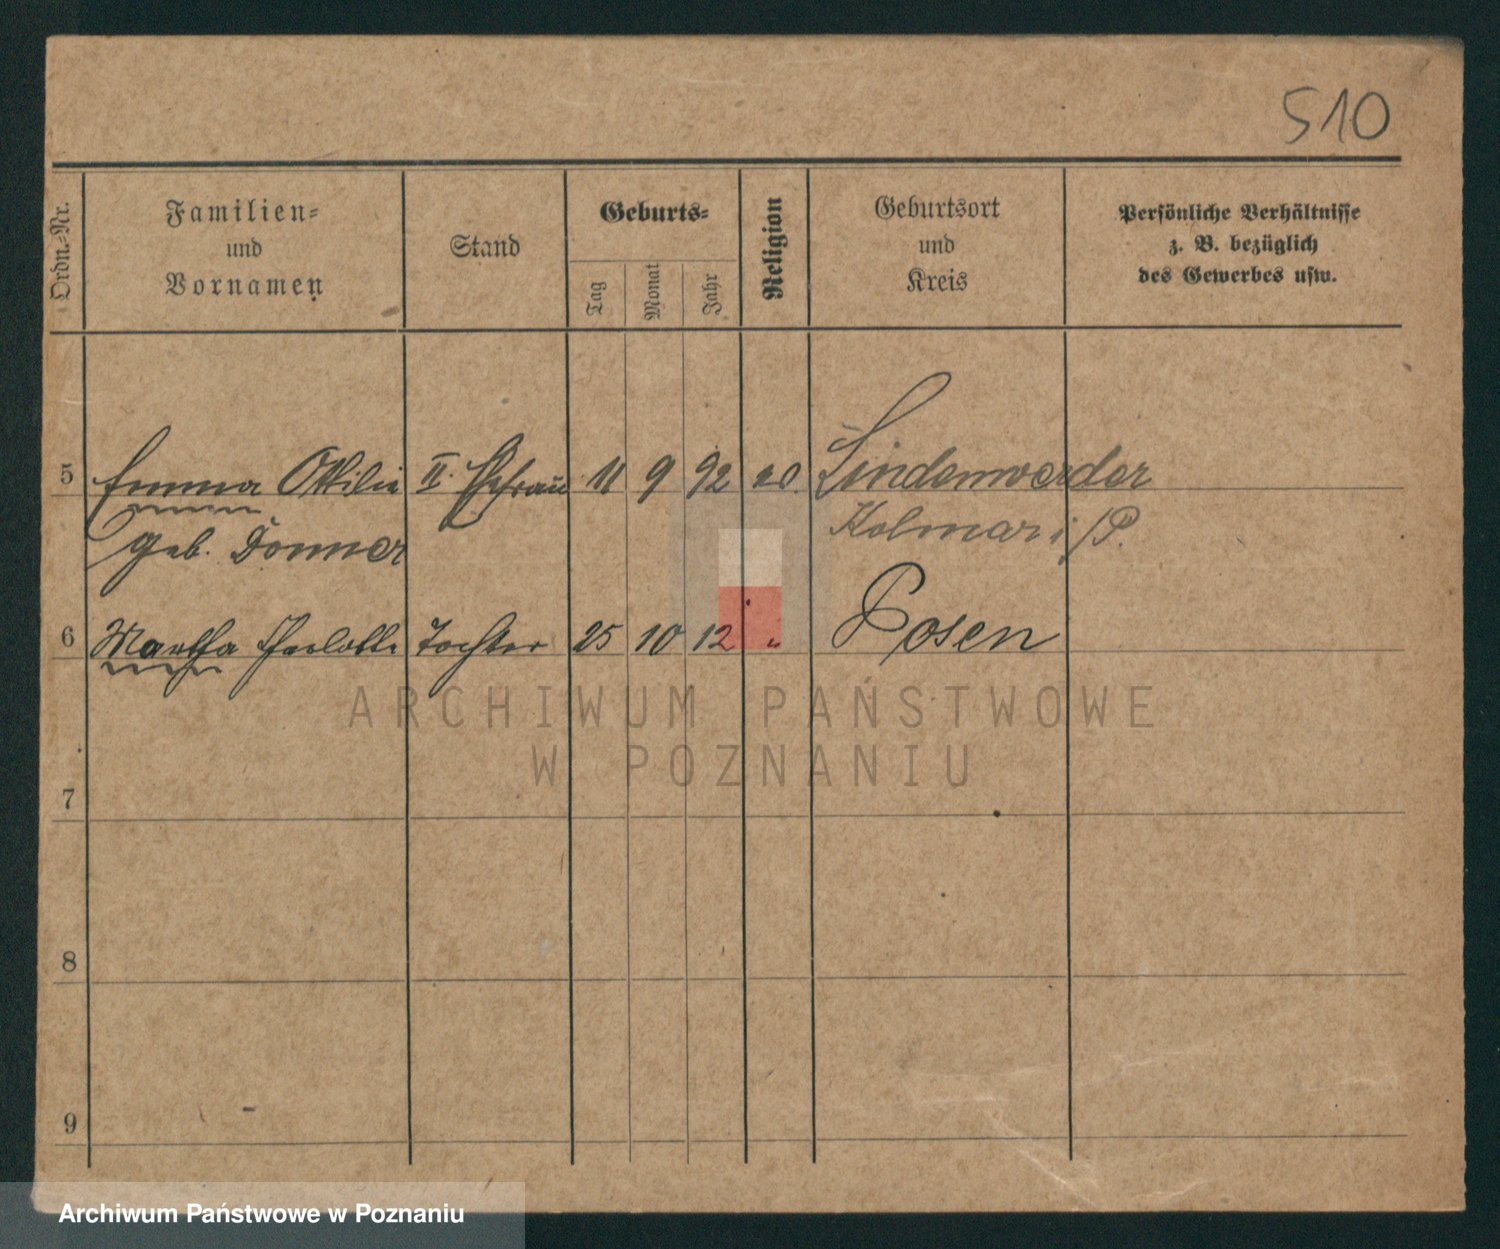 510
Ordn.-Nr.
Familien-
und
Vornamen
Stand
Geburts-
Tag
Monat
Jahr
Religion
Geburtsort
und
Kreis
Persönliche Verhältnisse
z. B. bezüglich
des Gewerbes usw.
5 Emma Ottilie II. Ehefrau 11 9 92 Lindenwerder
geb. Donner Kolmar i/P.
6 Martha Charlotte Tochter 25 10 12 " Posen
ARCHIWUM PAŃSTWOWE
W POZNANIU
7
8
9
Archiwum Państwowe w Poznaniu